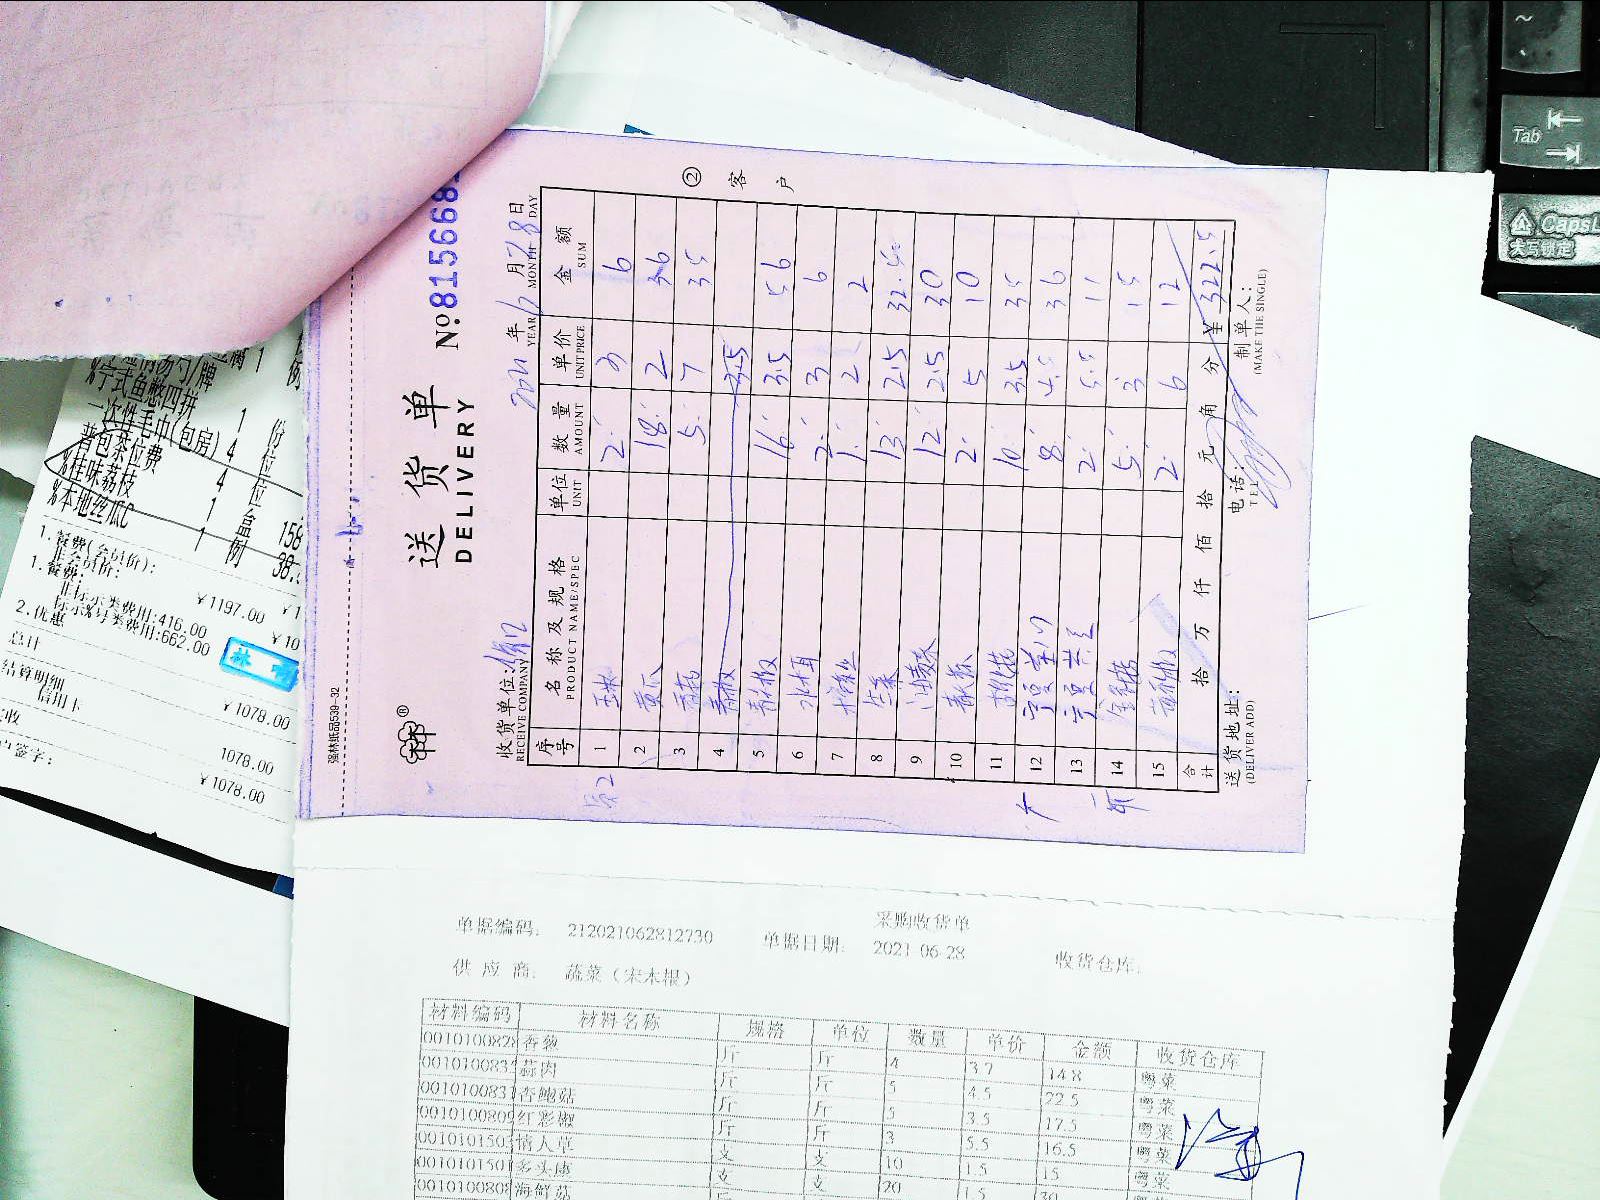 送货单
DELIVERY
No.8156685
收货单位:
RECEIVE COMPANY
2021 年 6 月 28 日
YEAR MONTH DAY
序号 名称及规格 单位 数量 单价 金额
PRODUCT NAME/SPEC UNIT AMOUNT UNIT PRICE SUM
1 2 3 6
2 黄瓜 18 2 36
3 5 7 35
4 青椒 3.5
5 青椒 16 3.5 56
6 水木耳 2 3 6
7 1 2 2
8 生菜 13 2.5 32.50
9 油麦菜 12 2.5 30
10 2 5 10
11 10 3.5 35
12 8 4.5 36
13 2 5.5 11
14 金针菇 5 3 15
15 2 6 12
合计 拾 万 仟 佰 拾 元 角 分 ¥ 322.5
送货地址:
(DELIVER ADD)
电话:
TEL
制单人:
(MAKE THE SINGLE)
② 客户
强林纸品539-32
采购收货单
单据编码: 212021062812730 单据日期: 2021-06-28 收货仓库:
供应商: 蔬菜(宋木根)
材料编码 材料名称 规格 单位 数量 单价 金额 收货仓库
001010082 香葱 斤 斤 4 3.7 14.8 粤菜
001010083 蒜肉 斤 斤 5 4.5 22.5 粤菜
001010083 杏鲍菇 斤 斤 5 3.5 17.5 粤菜
001010080 红彩椒 斤 斤 3 5.5 16.5 粤菜
001010150 情人草 支 支 10 1.5 15 粤菜
001010150 多头康 支 支 20 1.5 30
001010080 海鲜菇
%宁式鱼鲞四拼 1 份
一次性毛巾(包房) 4 位
普包茶位费 4 位
%桂味荔枝 1 盒 158
%本地丝瓜C 1 例 38.
1.餐费(会员价): ¥1197.00
非会员价:
1.餐费:
非标示类费用:416.00
标示%号类费用:662.00
2.优惠
总计 ¥1078.00
结算明细
信用卡 1078.00
¥1078.00
签字:
~
Tab
CapsL
大写锁定